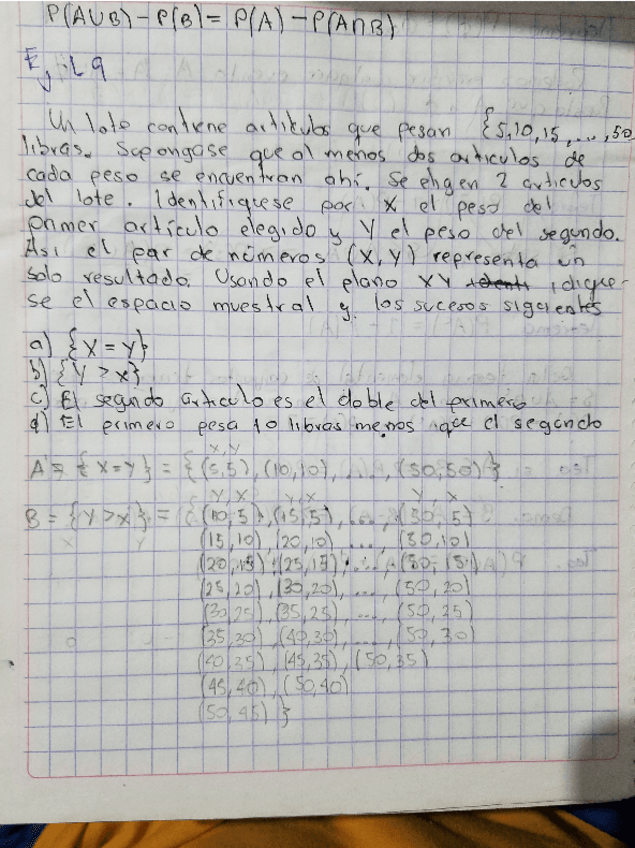 P(A∪B) - P(B) = P(A) - P(A∩B)
Ej 1.9
Un lote contiene artículos que pesan {5,10,15,...,50
libras. Supongase que al menos dos articulos de
cada peso se encuentran ahí. Se eligen 2 articulos
del lote. Identifiquese por X el peso del
primer artículo elegido y Y el peso del segundo.
Asi el par de números (X,Y) representa un
solo resultado. Usando el plano XY idique-
se el espacio muestral y los sucesos sigientes
a) {X = Y}
b) {Y > x}
c) El segundo articulo es el doble del primero
d) El primero pesa 10 libras menos que el segundo
x, y
A = {X=Y} = {(5,5), (10,10), ..., (50,50)}
y, x y, x y, x
B = {Y>x} = {(10,5), (15,5), ..., (50,5)
x y
(15,10), (20,10) ..., (50,10)
(20,15), (25,15), ..., (50,15)
(25,20), (30,20), ..., (50,20)
(30,25), (35,25), ..., (50,25)
(35,30), (40,30), ..., (50,30)
(40,35), (45,35), (50,35)
(45,40), (50,40)
(50,45)}